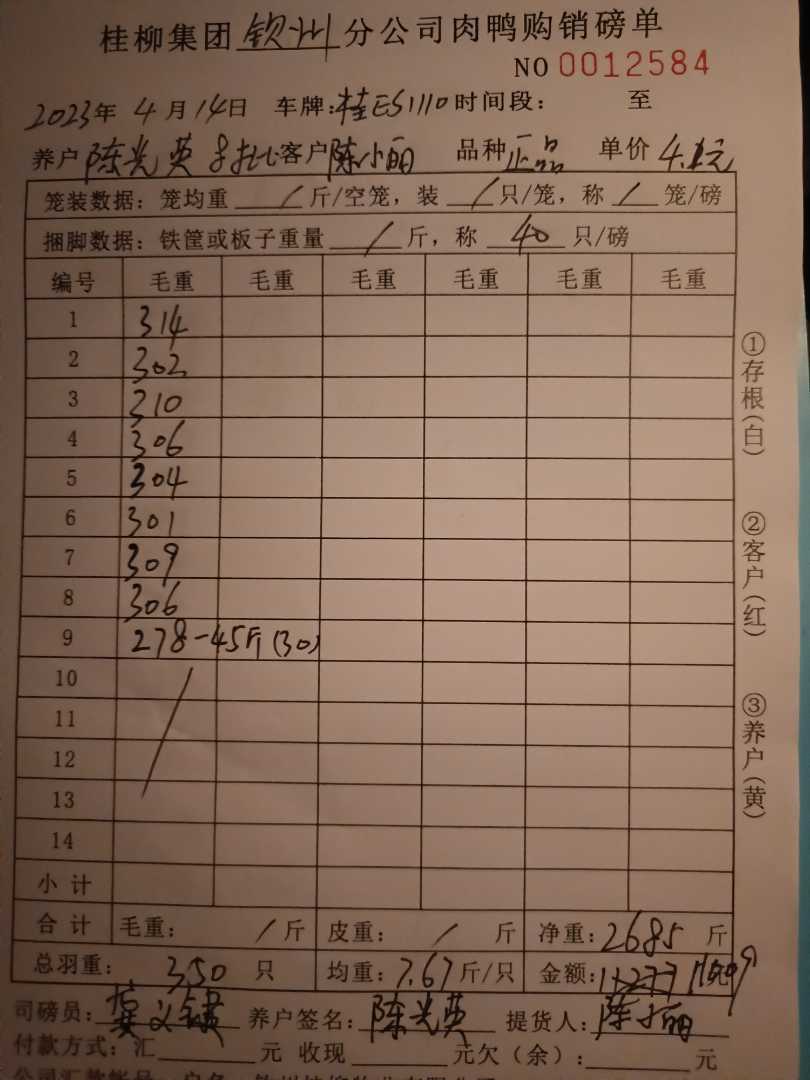 桂柳集团 钦州 分公司肉鸭购销磅单
NO 0012584
2023年 4月14日 车牌:桂ES1110 时间段: 至
养户 陈光英 客户 陈小丽 品种 正品 单价 4.2元
笼装数据: 笼均重 / 斤/空笼, 装 / 只/笼, 称 / 笼/磅
捆脚数据: 铁筐或板子重量 / 斤, 称 40 只/磅
编号 毛重 毛重 毛重 毛重 毛重 毛重
1 314
2 302
3 310
4 306
5 304
6 301
7 309
8 306
9 278-45斤(30)
10
11
12
13
14
小计
合计 毛重: / 斤 皮重: / 斤 净重: 2685 斤
总羽重: 350 只 均重: 7.67 斤/只 金额: 11277
司磅员: 养户签名: 陈光英 提货人: 陈小丽
付款方式: 汇 元 收现 元欠(余): 元
①存根(白)
②客户(红)
③养户(黄)